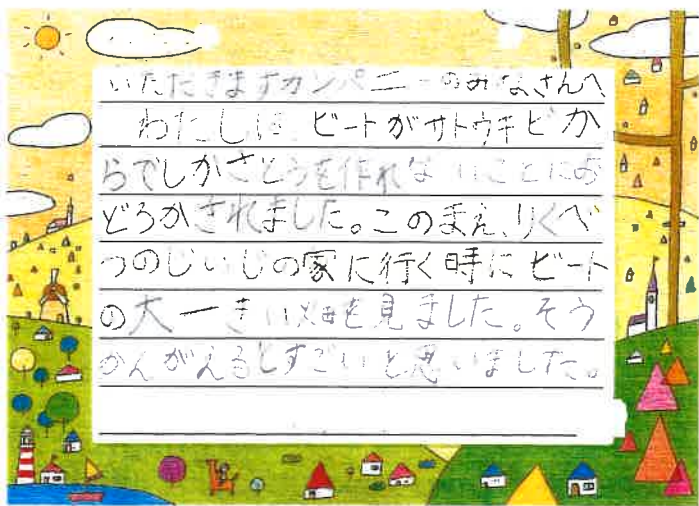 いただきますカンパニーのみなさんへ
わたしは、ビートがサトウキビか
らでしかさとうを作れないことにお
どろかされました。このまえ、りくべ
つのじいじの家に行く時にビート
の大一きい畑を見ました。そう
かんがえるとすごいと思いました。